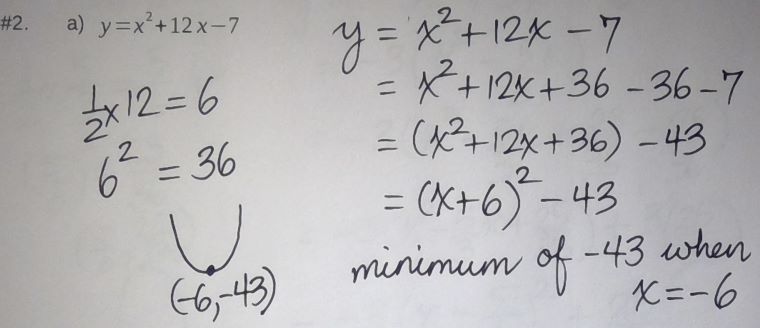 #2. a) y=x²+12x-7
½x12=6
6²=36
(-6,-43)
y = x²+12x-7
= x²+12x+36-36-7
= (x²+12x+36)-43
= (x+6)²-43
minimum of -43 when
x=-6